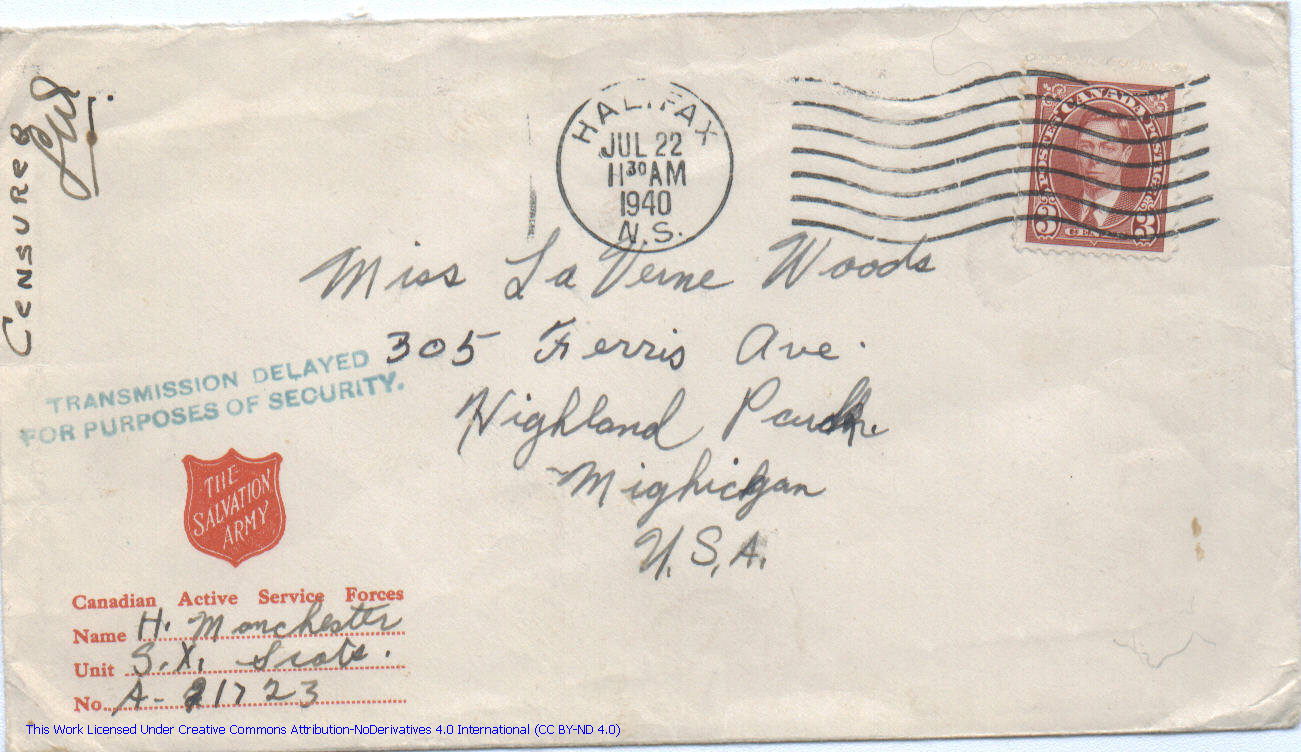 CENSURED
HALIFAX
JUL 22
11 30 AM
1940
N.S.
POSTES CANADA POSTAGE
3 3
Miss La Verne Woods
305 Ferris Ave.
Highland Park
Mighichgan
U.S.A.
TRANSMISSION DELAYED
FOR PURPOSES OF SECURITY.
THE
SALVATION
ARMY
Canadian Active Service Forces
Name H. Manchester
Unit S.X. Scots.
No. A-21723
This Work Licensed Under Creative Commons Attribution-NoDerivatives 4.0 International (CC BY-ND 4.0)